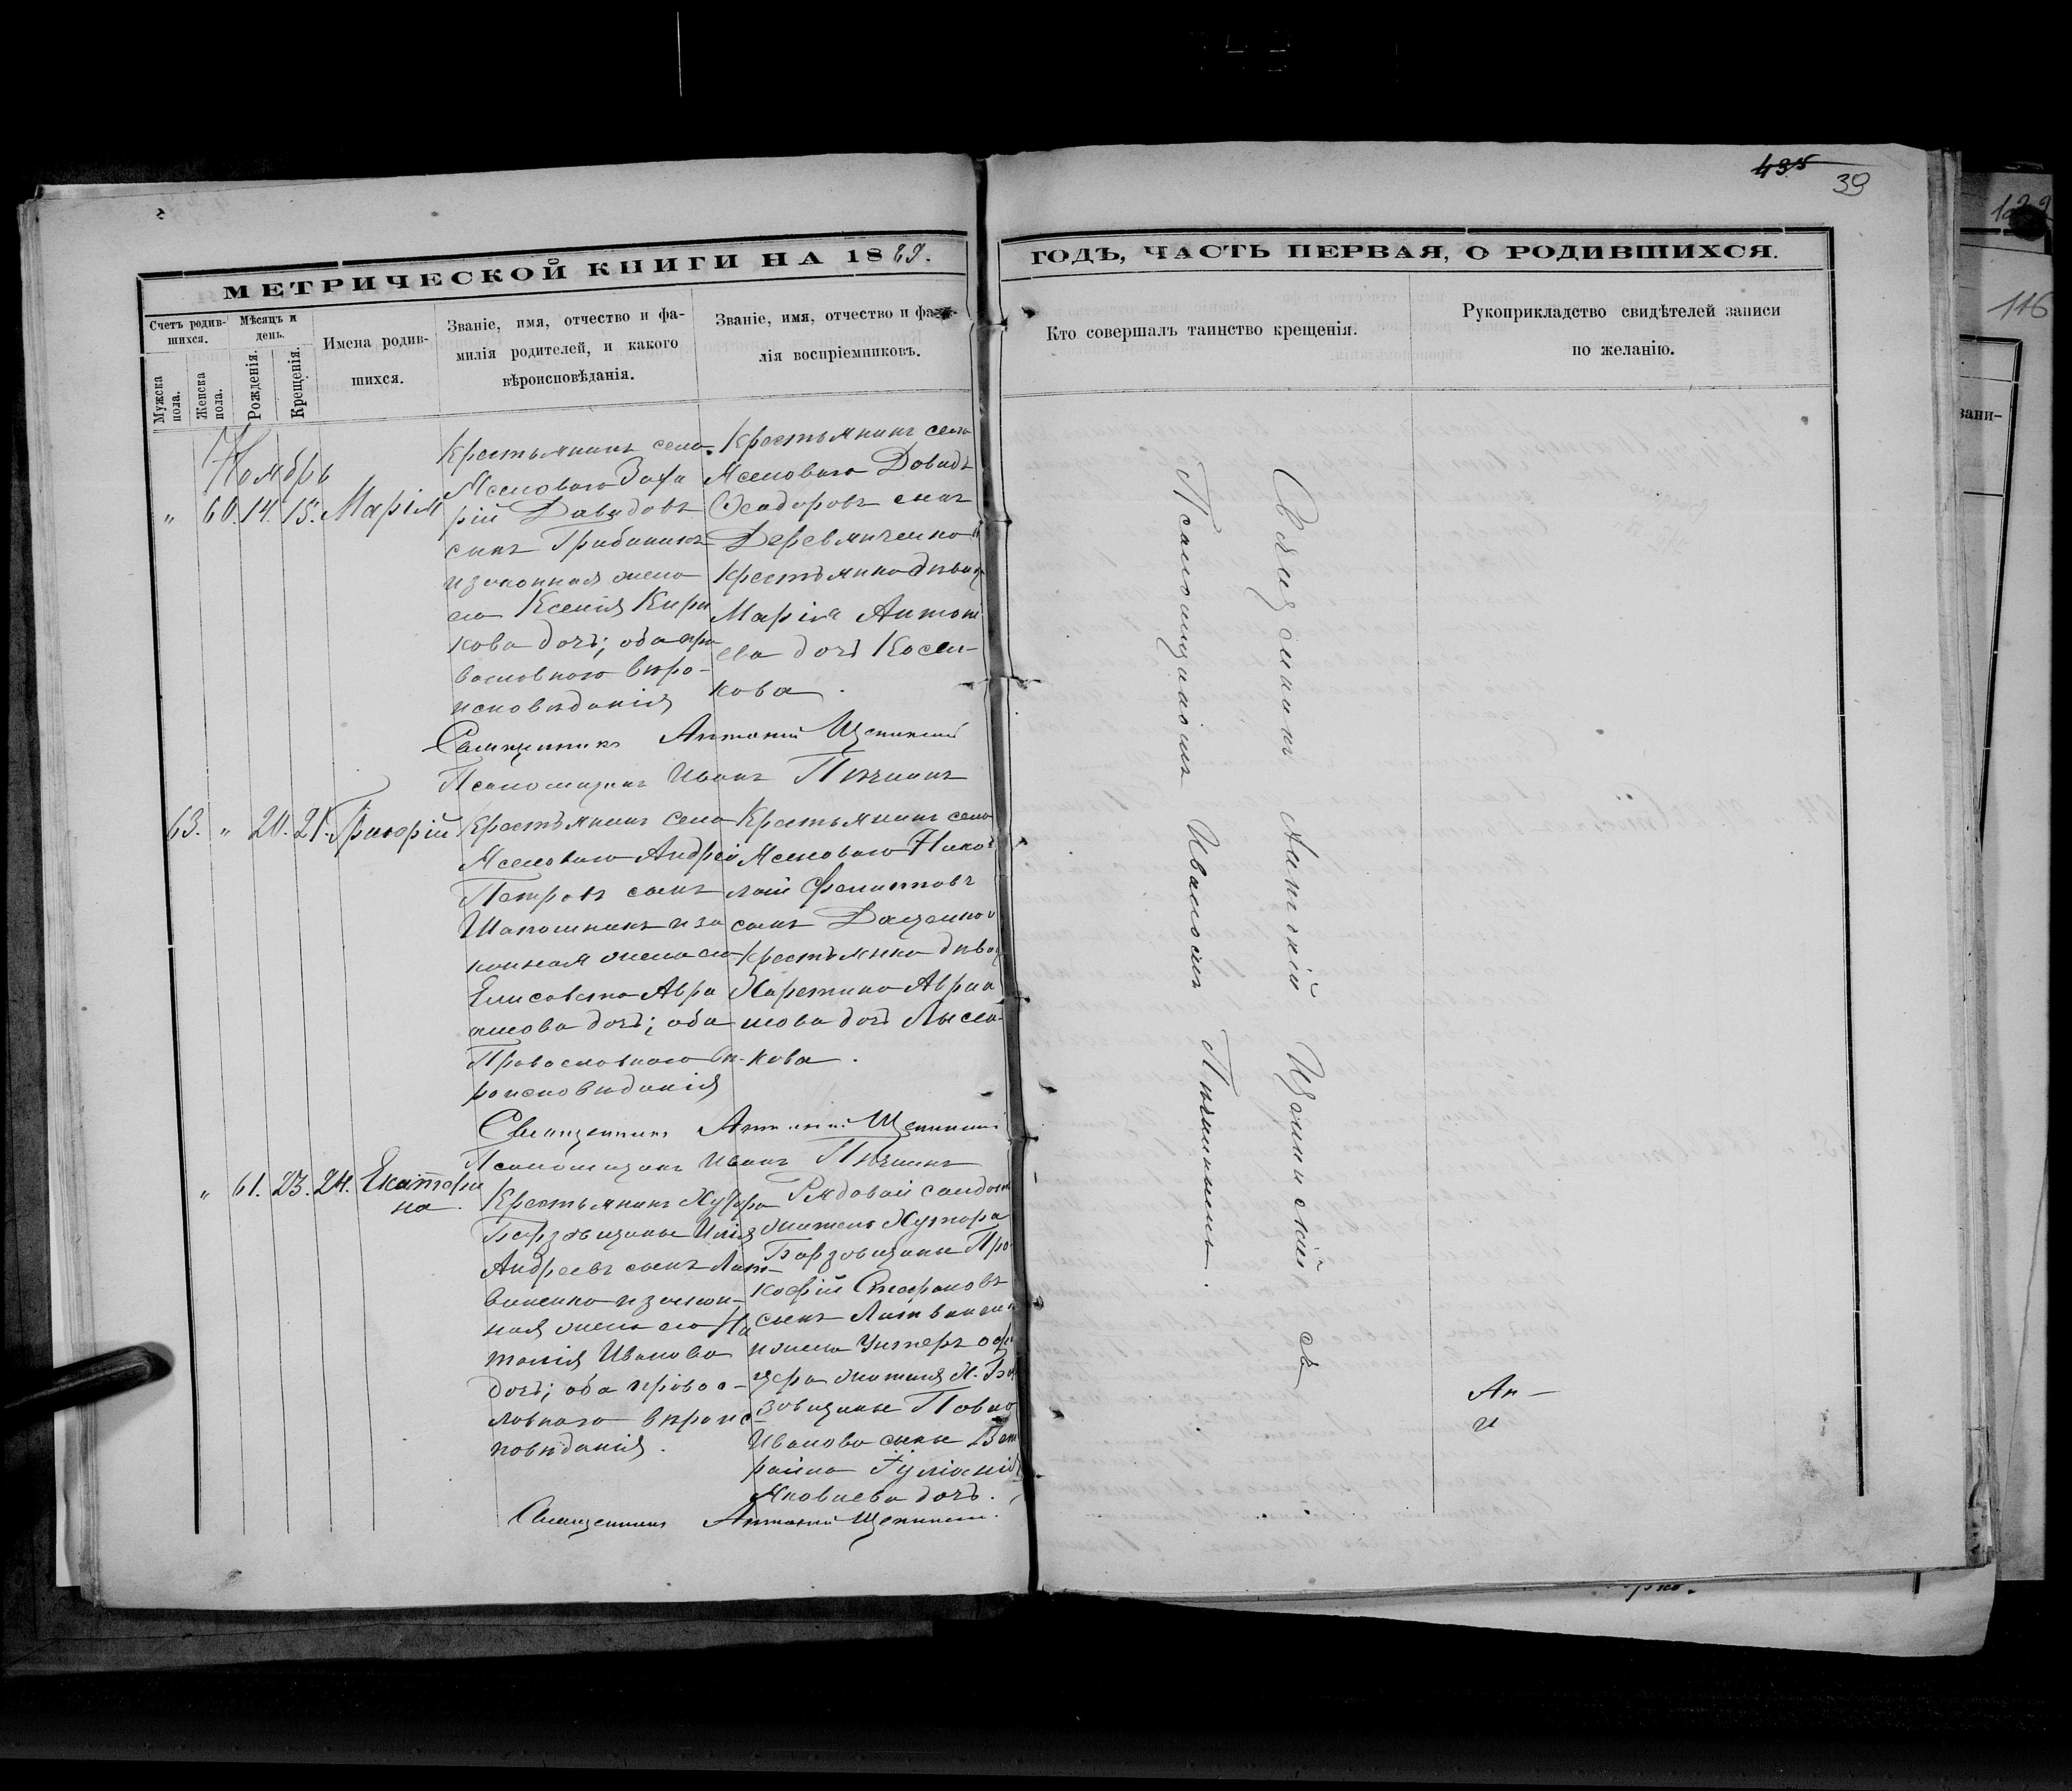 435
39
МЕТРИЧЕСКОЙ КНИГИ НА 1889.
ГОДЪ, ЧАСТЬ ПЕРВАЯ, О РОДИВШИХСЯ.
Счетъ родив-
шихся.
Мужска
пола.
Женска
пола.
Мѣсяцъ и
день.
Рожденія.
Крещенія.
Имена родив-
шихся.
Званіе, имя, отчество и фа-
милія родителей, и какого
вѣроисповѣданія.
Званіе, имя, отчество и фами-
лія воспріемниковъ.
Кто совершалъ таинство крещенія.
Рукоприкладство свидѣтелей записи
по желанію.
Ноябрь
„ 60. 14. 15. Марія
Крестьянинъ села
Ясеноваго Заха
рій Давидовъ
сынъ Грибаникъ
и законная жена
его Ксенія Кири
кова дочь; оба пра
вославного вѣро-
исповѣданія
Крестьянинъ села
Ясеноваго Давидъ
Ѳеодоровъ сынъ
Деревянченко и
крестьянка дѣвица
Марія Антоні
ева дочь Косен-
кова.
Священникъ Антоній Щепинскій
Псаломщикъ Иванъ Пѣчинъ
63. „ 20. 21. Григорій
Крестьянинъ села
Ясеноваго Андрей
Петровъ сынъ
Шапошникъ и за
конная жена его
Елисавета Авра
амова дочь; оба
Православного вѣ-
роисповѣданія
Крестьянинъ села
Ясеноваго Нико
лай Филипповъ
сынъ Даценко и
крестьянка дѣвица
Харитина Авраа
мова дочь Лысен-
кова.
Священникъ Антоній Щепинскій
Псаломщикъ Иванъ Пѣчинъ
„ 61. 23. 24. Екатери
на.
Крестьянинъ Хутора
Борзовщины Илія
Андреевъ сынъ Лит-
виненко и закон-
ная жена его На
талія Иванова
дочь; оба правос-
лавнаго вѣроис-
повѣданія.
Рядовой солдатъ
житель Хутора
Борзовщины Про
кофій Стефановъ
сынъ Литвиненко
и жена Унтеръ офи
цера жителя Х. Бор
зовщины Павла
Иванова сына
Іуліанія
Яковлева дочь.
Священникъ Антоній Щепинскій.
Священникъ Антоній Щепинскій съ
Псаломщикомъ Иваномъ Пѣчинымъ.
116